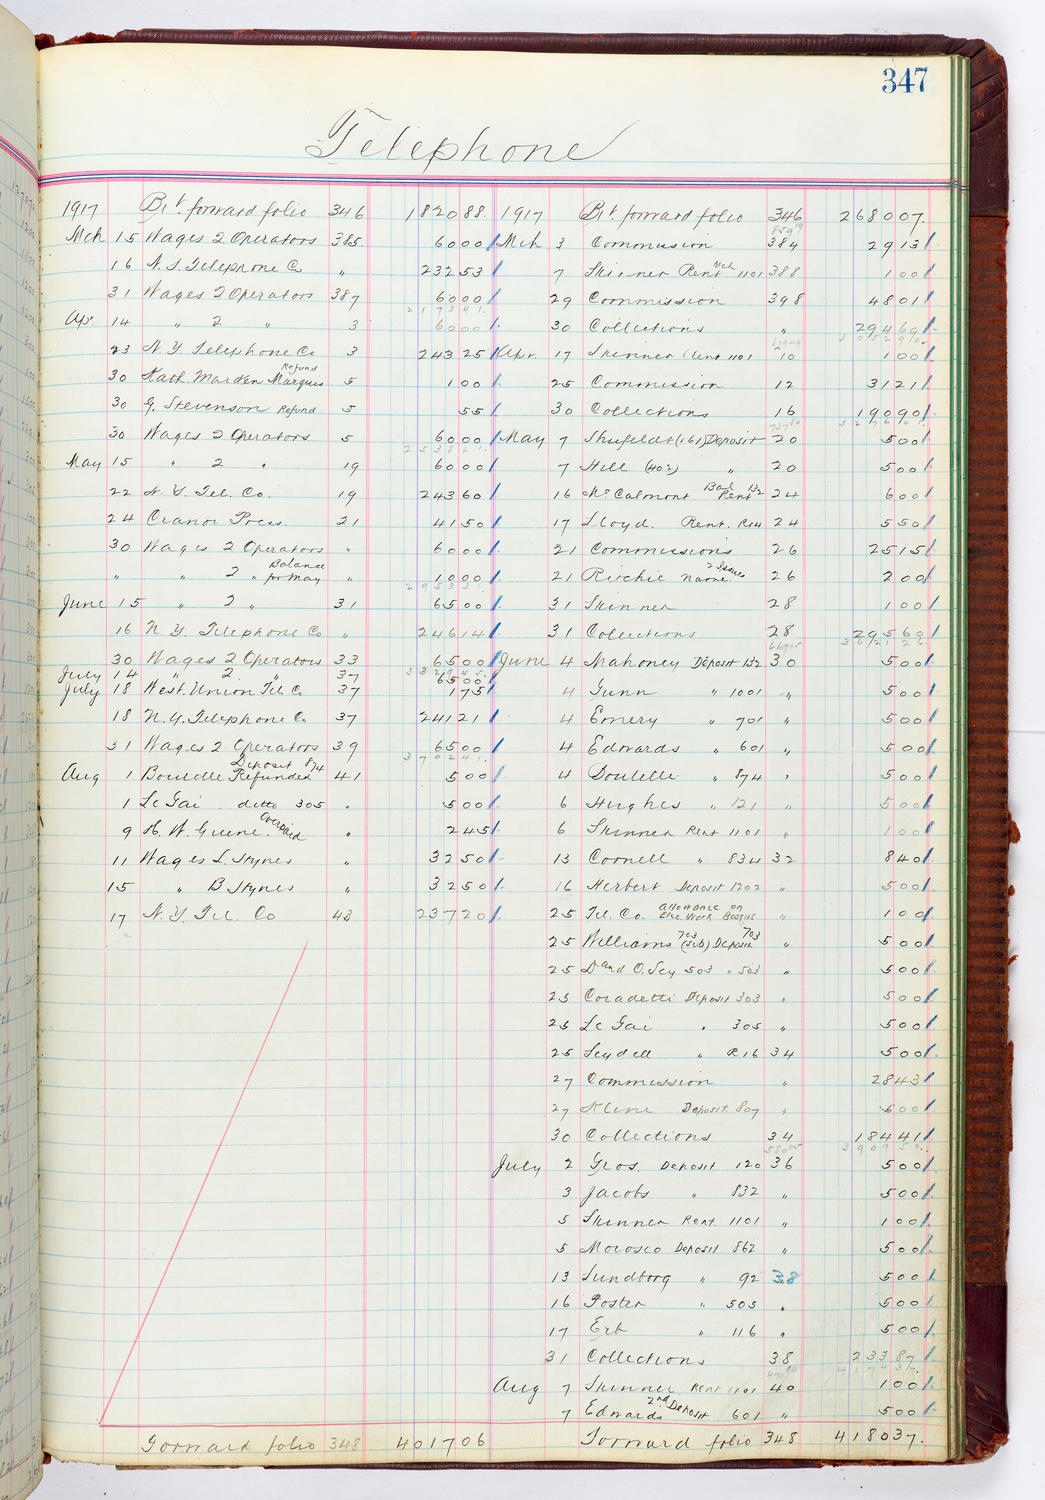 347
Telephone
1917 Bt. forward folio 346 182088.
Mch 15 Wages 2 Operators 385 6000
16 N.Y. Telephone Co " 23253
31 Wages 2 Operators 387 6000
217341.
Ap. 14 " 2 " 3 6000
23 N.Y. Telephone Co 3 24325
30 Kath. Marden Marquis Refund 5 100
30 G. Stevenson Refund 5 55
30 Wages 2 Operators 5 6000
253821.
May 15 " 2 " 19 6000
22 N.Y. Tel. Co. 19 24360
24 Cranor Press. 21 4150
30 Wages 2 Operators " 6000
" " 2 " Balance for May " 1000
June 15 " 2 " 31 6500
16 N.Y. Telephone Co " 24614
30 Wages 2 Operators 33 6500
July 14 " 2 " 37 6500
July 18 West. Union Tel. Co 37 175
18 N.Y. Telephone Co 37 24121
31 Wages 2 Operators 39 6500
370241.
Aug 1 Boutelle Deposit 874 Refunded 41 500
1 Le Gai ditto 305 " 500
9 H. W. Greene. Overpaid " 245
11 Wages L. Stynes " 3250
15 " B Stynes " 3250
17 N.Y. Tel. Co 43 23720
Forward folio 348 401706
1917 Bt. forward folio 346 268007.
Mch 3 Commission 384 2913
7 Skinner Rent Mch 1101 388 100
29 Commission 398 4801
30 Collections " 29469
Apr. 17 Skinner (Rent 1101 10 100
25 Commission 12 3121
30 Collections 16 19090
May 7 Shufeldt (161) Deposit 20 500
7 Hill (402) " 20 500
16 McCalmont Bal Rent 132 24 600
17 Lloyd. Rent. R14 24 550
21 Commissions 26 2515
21 Ritchie Name 2 Issues 26 200
31 Skinner 28 100
31 Collections 28 29560
362126.
June 4 Mahoney Deposit 132 30 500
4 Gunn " 1001 " 500
4 Emery " 701 " 500
4 Edwards " 601 " 500
4 Boutelle " 874 " 500
6 Hughes " 121 " 500
6 Skinner Rent 1101 " 100
13 Cornell " 834 32 840
16 Herbert Deposit 1202 " 500
25 Tel. Co. Allowance on Elec. Work Booths " 100
25 Williams 703 (sub) Deposit 703 " 500
25 D and O. Sey 503 " 503 " 500
25 Coradetti Deposit 303 " 500
25 Le Gai " 305 " 500
25 Leydell " R16 34 500
27 Commission " 2843
27 Kline Deposit 807 " 500
30 Collections 34 18441
390950.
July 2 Gros. Deposit 120 36 500
3 Jacobs " 832 " 500
5 Skinner Rent. 1101 " 100
5 Morosco Deposit 862 " 500
13 Lundborg " 92 38 500
16 Foster " 505 " 500
17 Erb " 116 " 500
31 Collections 38 23387
417437.
Aug 7 Skinner Rent 1101 40 100
7 Edwards 2nd Deposit 601 " 500
Forward folio 348 418037.